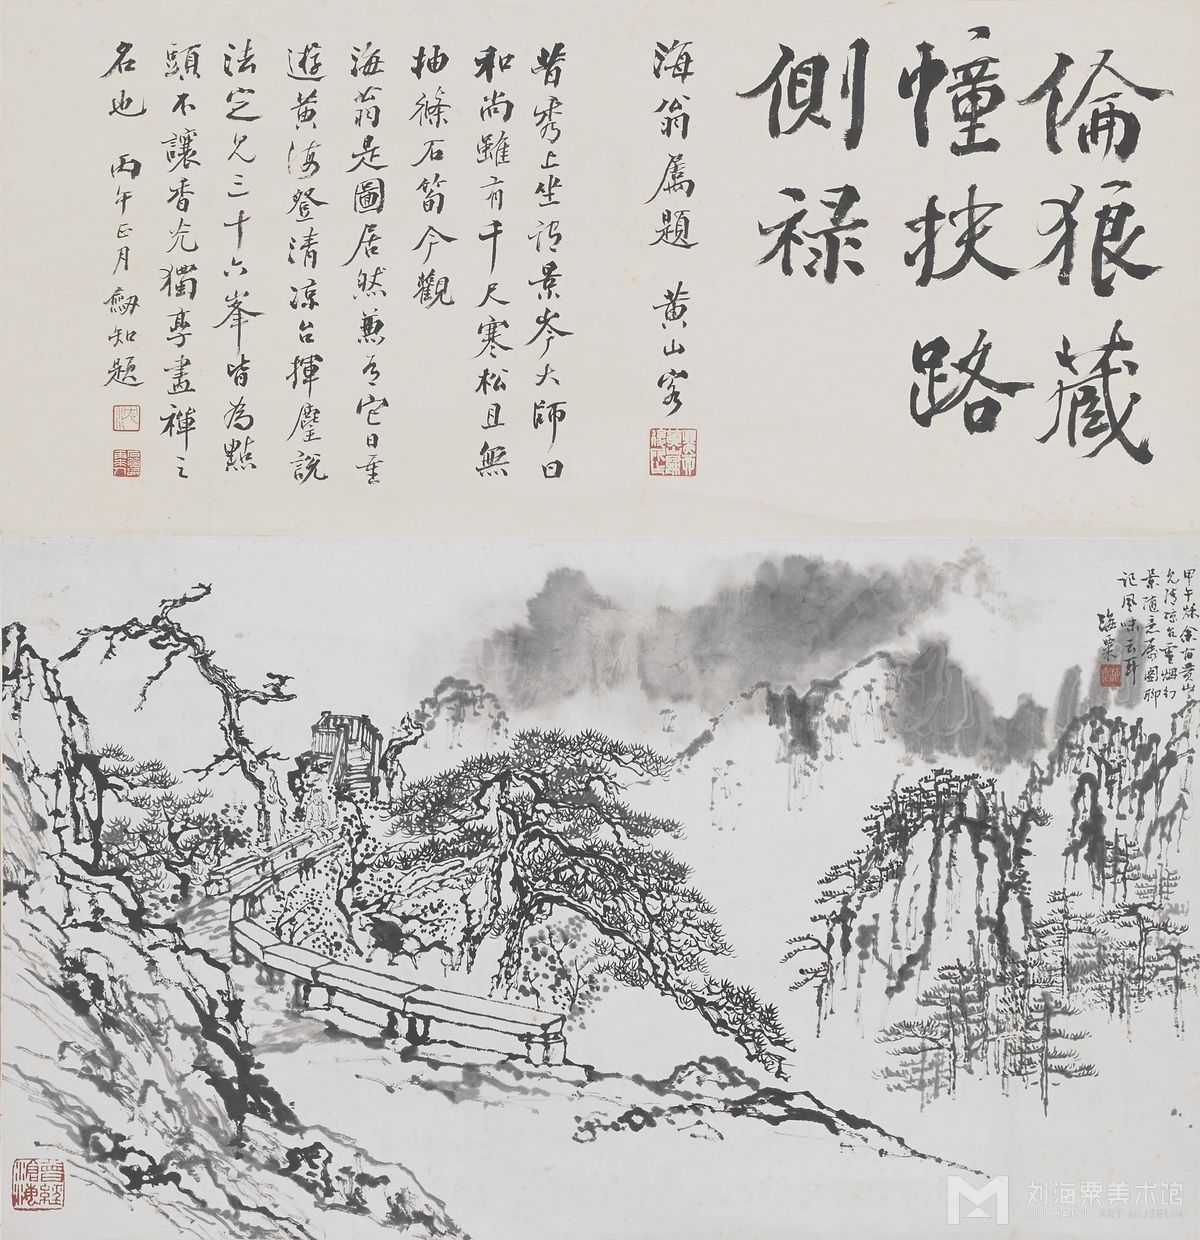 倫狼藏
幢挾路
側祿
海翁屬題 黃山客
昔秀上坐謂景岑大師曰
和尚雖有千尺寒松且無
抽條石筍今觀
海翁是圖居然兼有它日重
遊黃海登清涼台揮麈說
法定見三十六峯皆為點
頭不讓香光獨享畫禪之
名也 丙午正月劒知題
甲午秋余在黃山
見清涼台雲烟幻
景隨意為圖聊
記風味云耳
海粟
曾經滄海
刘海粟美术馆
LIU HAISU ART MUSEUM